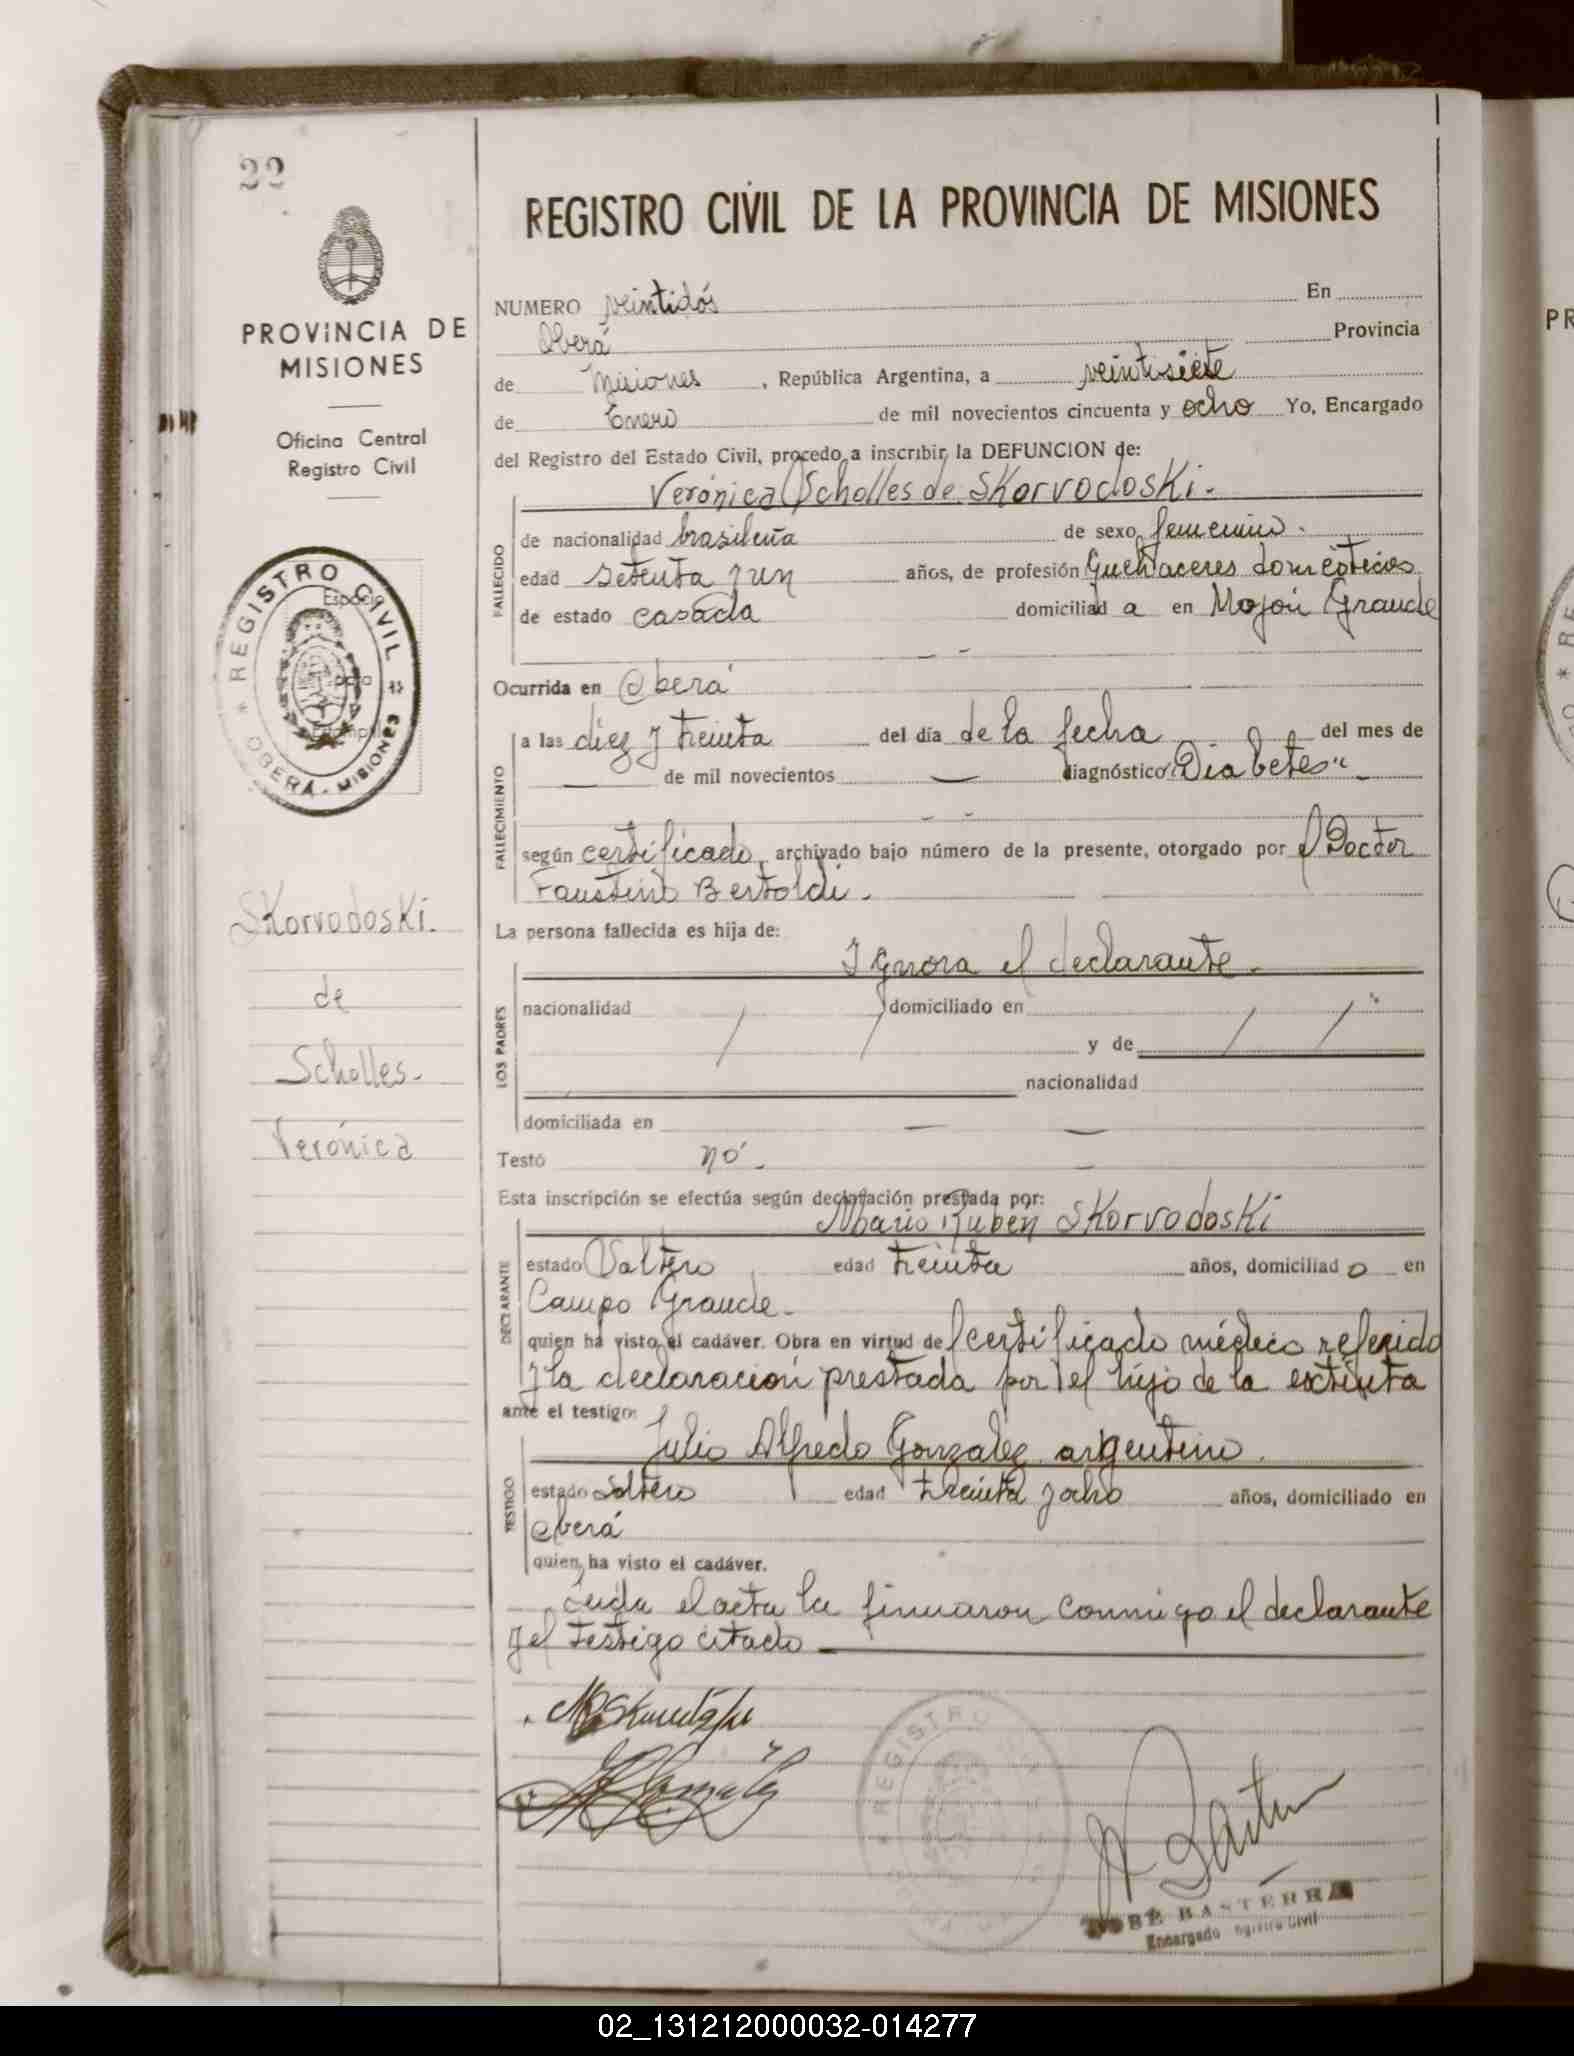 22
PROVINCIA DE
MISIONES
Oficina Central
Registro Civil
* REGISTRO CIVIL * OBERÁ - MISIONES
Espacio
para
Estampilla
Skorvodoski.
de
Scholles.
Verónica
REGISTRO CIVIL DE LA PROVINCIA DE MISIONES
NUMERO veintidós En
Oberá Provincia
de Misiones, República Argentina, a veintisiete
de Enero de mil novecientos cincuenta y ocho Yo, Encargado
del Registro del Estado Civil, procedo a inscribir la DEFUNCION de:
Verónica Scholles de Skorvodoski.
FALLECIDO
de nacionalidad brasileña de sexo femenino.
edad setenta y un años, de profesión Quehaceres domésticos
de estado casada domiciliada en Mojón Grande
Ocurrida en Oberá
FALLECIMIENTO
a las diez y treinta del día de la fecha del mes de
— de mil novecientos — diagnóstico "Diabetes"
según certificado archivado bajo número de la presente, otorgado por el Doctor
Faustino Bertoldi.
La persona fallecida es hija de:
Ignora el declarante.
LOS PADRES
nacionalidad domiciliado en
y de
nacionalidad
domiciliada en —
Testó no.
Esta inscripción se efectúa según declaración prestada por:
Mario Ruben Skorvodoski
DECLARANTE
estado Soltero edad treinta años, domiciliado en
Campo Grande.
quien ha visto el cadáver. Obra en virtud del certificado médico referido
y la declaración prestada por el hijo de la extinta
ante el testigo:
Julio Alfredo Gonzalez argentino.
TESTIGO
estado soltero edad treinta y ocho años, domiciliado en
Oberá
quien ha visto el cadáver.
Leída el acta la firmaron conmigo el declarante
y el testigo citado
REGISTRO
JOSÉ BASTERRA
Encargado Registro Civil
02_131212000032-014277